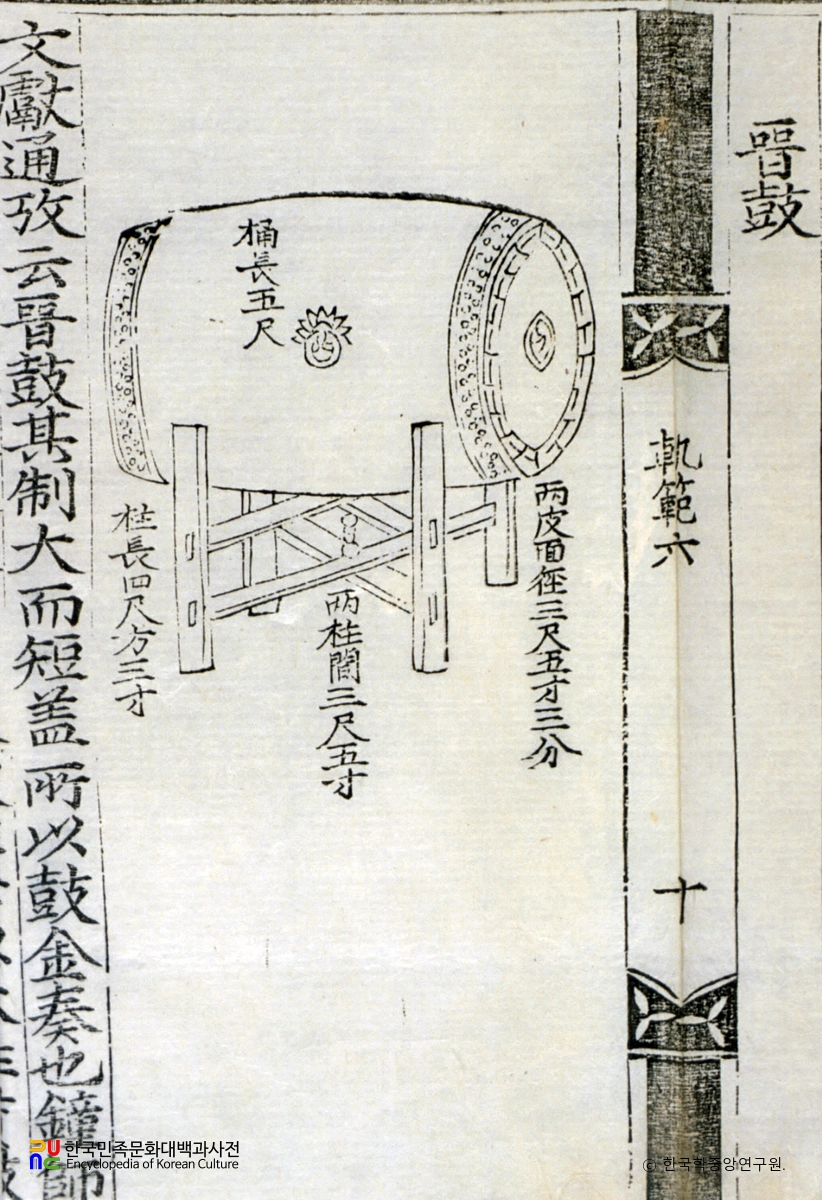 晉鼓
軌範六
十
桶長五尺
兩皮面徑三尺五寸三分
两柱間三尺五寸
柱長四尺方三寸
文獻通攷云晉鼓其制大而短盖所以鼓金奏也鐘師
한국민족문화대백과사전
Encyclopedia of Korean Culture
© 한국학중앙연구원.